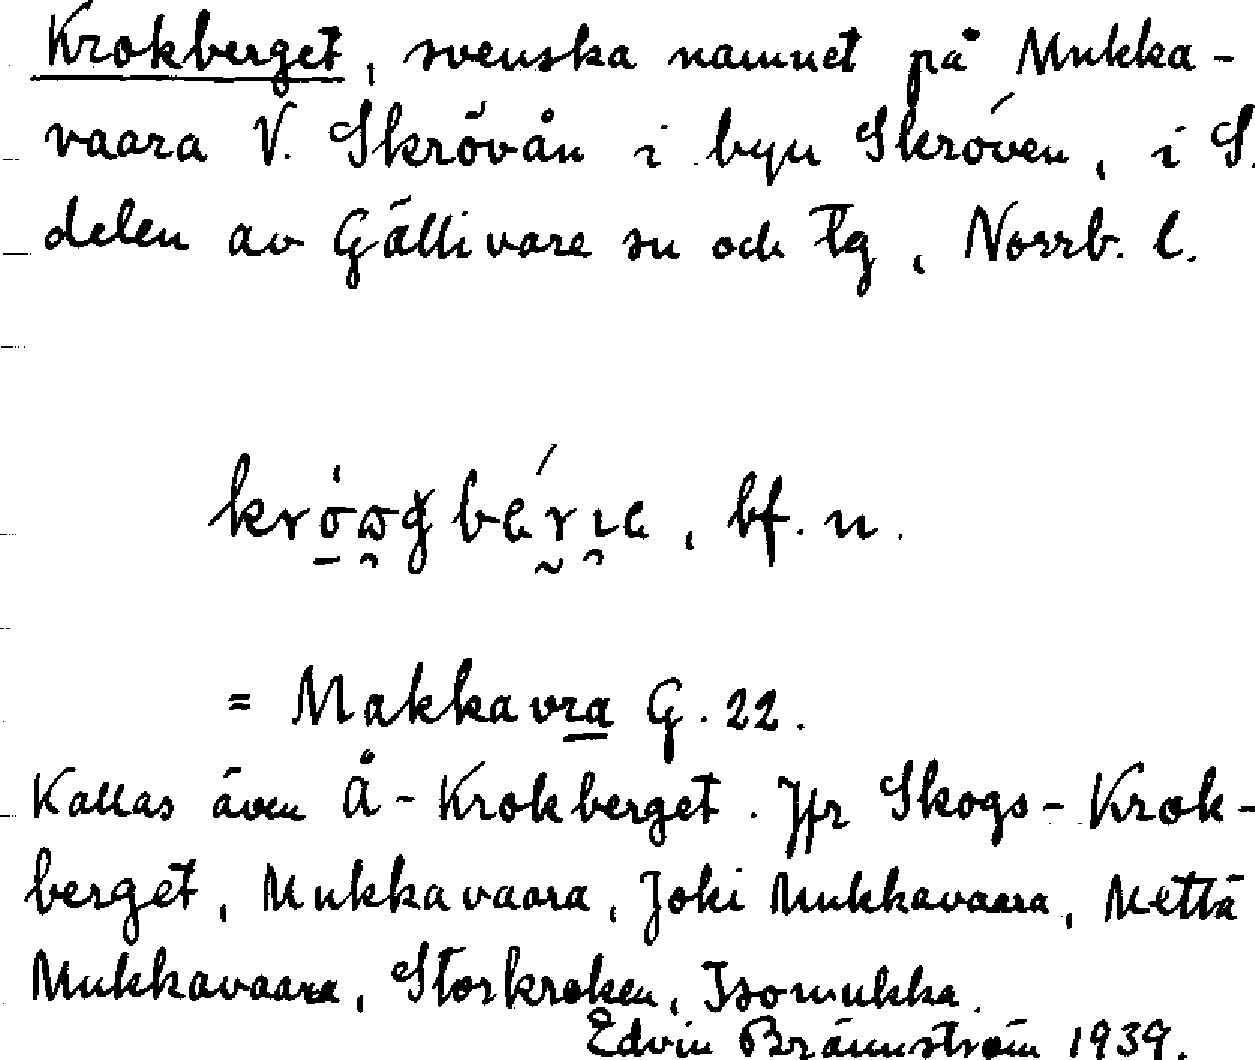 Krokberget, svenska namnet på Mukka-
vaara V. Skrövån i byn Skröven, i S.
delen av Gällivare sn och tg, Norrb. l.
bf. n.
= Makkavra G. 22.
Kallas även Å-Krokberget. Jfr Skogs-Krok-
berget, Mukkavaara, Joki Mukkavaara, Mettä
Mukkavaara, Storkroken, Isomukka.
Edvin Brännström 1939.